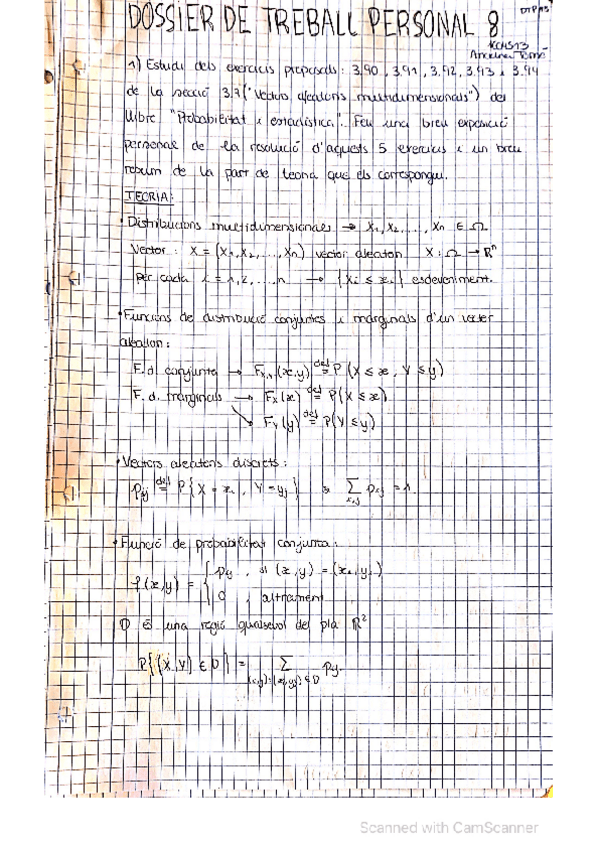 DOSSIER DE TREBALL PERSONAL 8
DTP M3
1) Estudi dels exercicis proposats: 3.90, 3.91, 3.92, 3.93 i 3.94
de la secció 3.7 ("Vectors aleatoris multidimensionals") del
llibre "Probabilitat i estadística". Feu una breu exposició
personal de la resolució d'aquests 5 exercicis i un breu
resum de la part de teoria que els correspongui.
TEORIA:
· Distribucions multidimensionals → X₁, X₂, ..., Xn ∈ Ω.
Vector: X = (X₁, X₂, ..., Xn) vector aleatori. X: Ω → Rⁿ
per cada i = 1, 2, ..., n → {Xi ≤ xi} esdeveniment.
· Funcions de distribució conjuntes i marginals d'un vector
aleatori:
F.d. conjunta → F (x,y) def= P(X ≤ x, Y ≤ y)
F.d. marginals → Fx(x) def= P(X ≤ x)
↘ Fy(y) def= P(Y ≤ y)
· Vectors aleatoris discrets:
Pij def= P{X = xi, Y = yj} Σ i,j Pij = 1.
· Funció de probabilitat conjunta:
f(x,y) = { Pij, si (x,y) = (xi, yj)
0, altrament
D és una regió qualsevol del pla R²
P{(X,Y) ∈ D} = Σ Pij
(x,y)=(xi,yj) ∈ D
Scanned with CamScanner